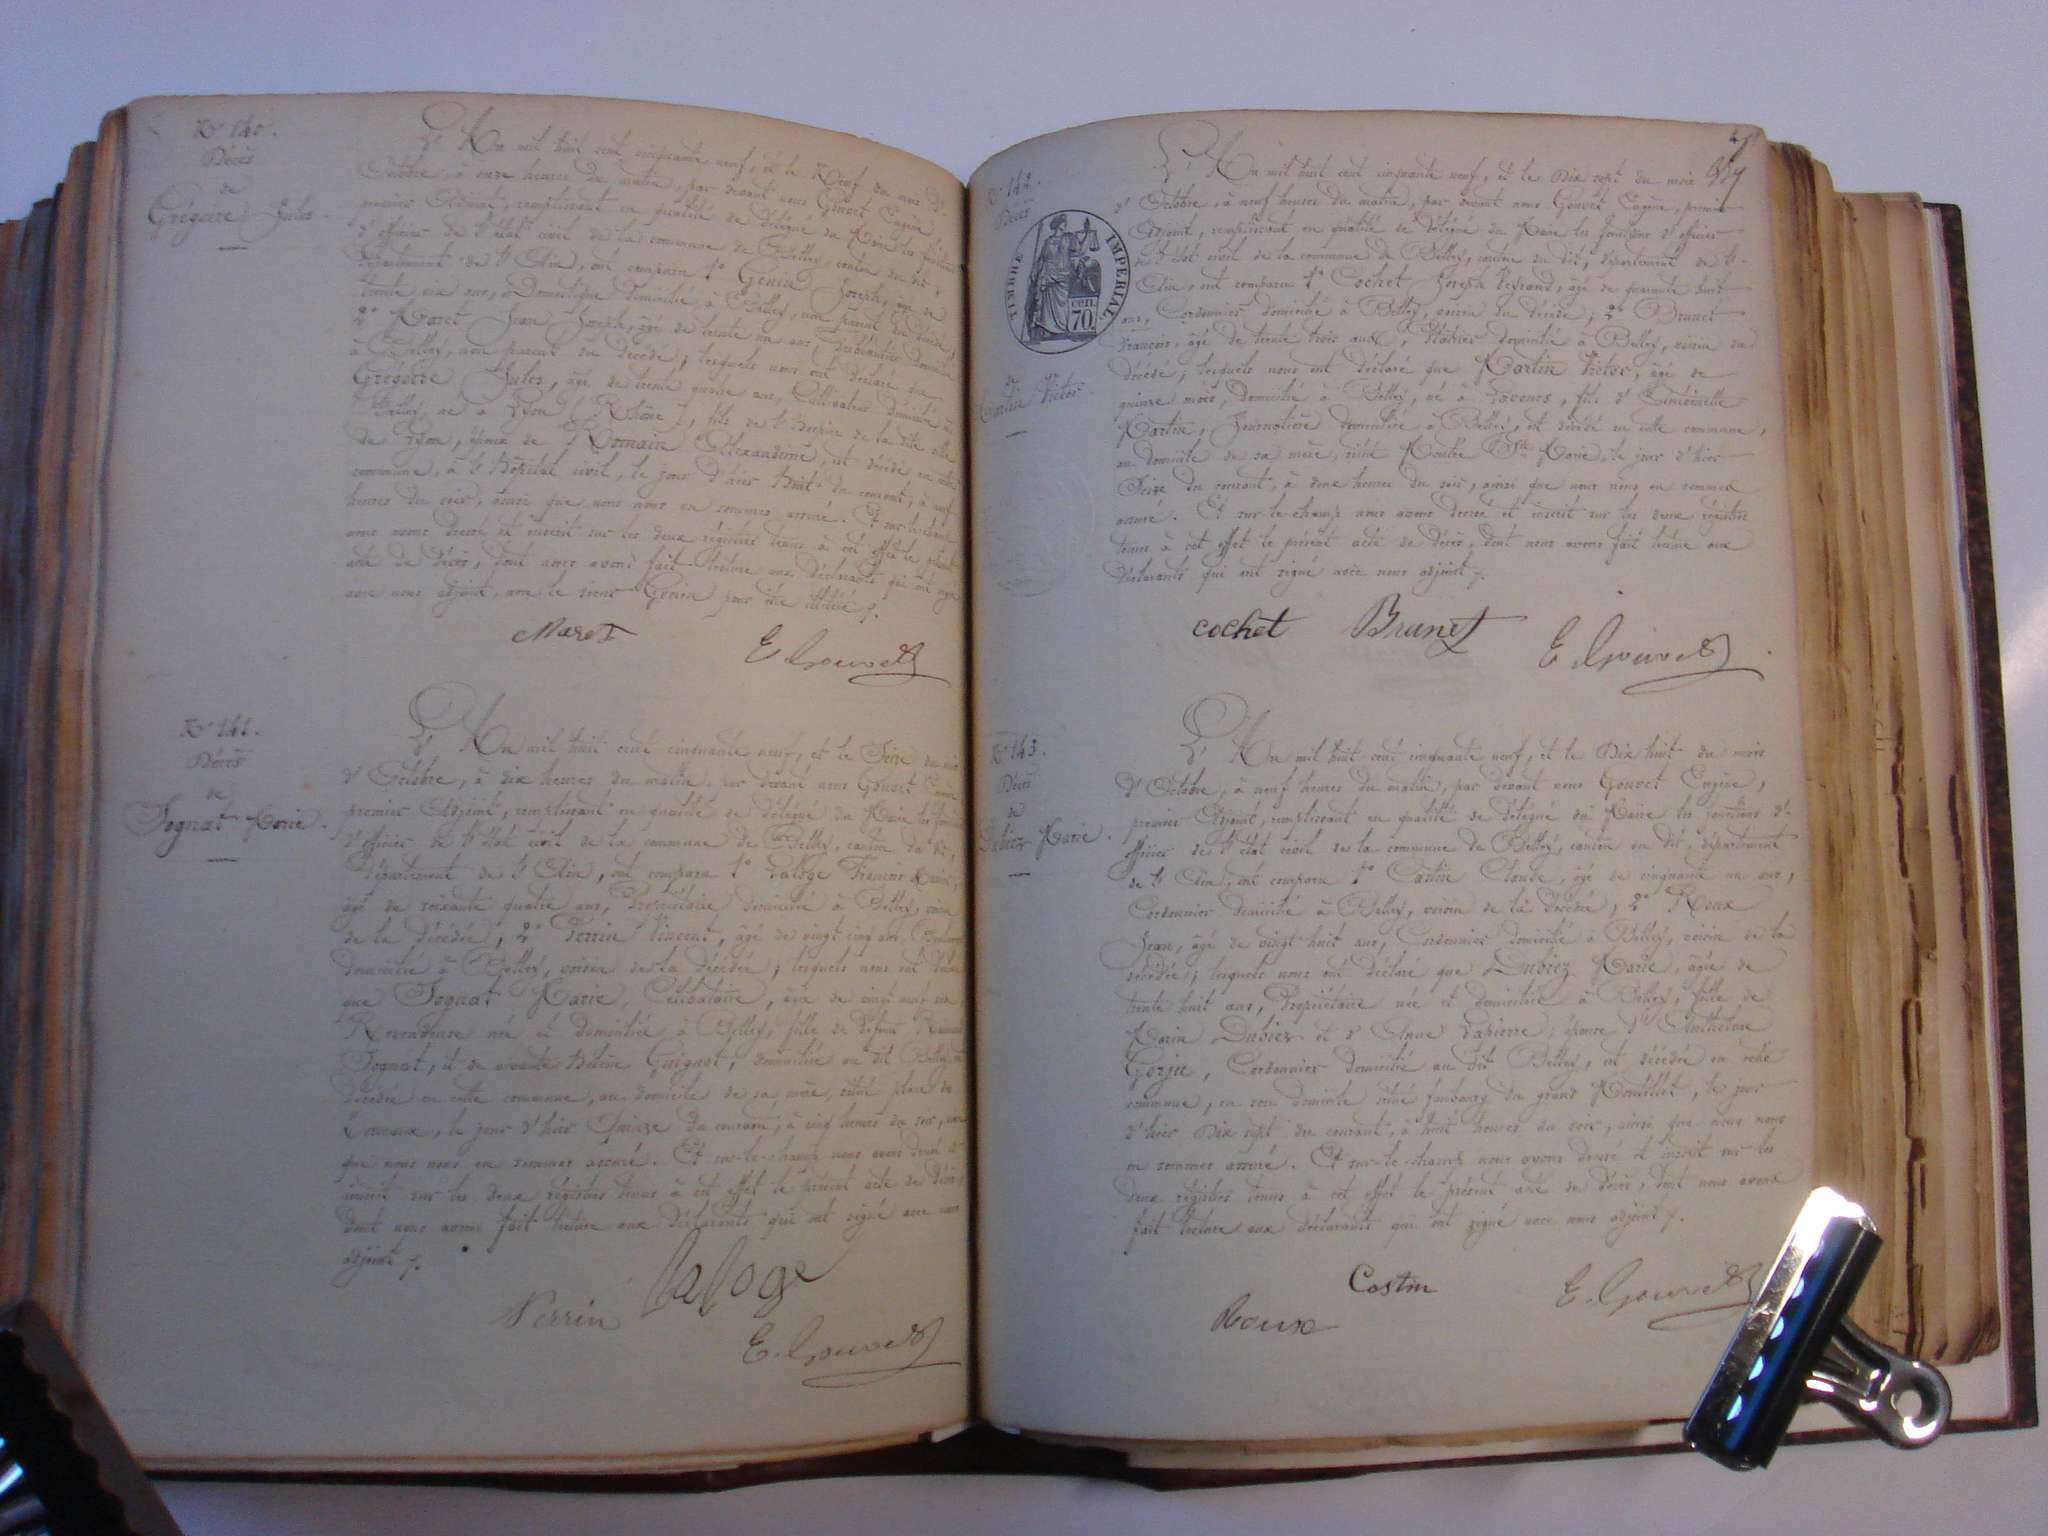 N° 140.
Décès
de
Grégoire Jules
L'An mil huit cent cinquante neuf, et le Neuf du mois d'
Octobre, à onze heures du matin, par devant nous Gouvet Eugène
premier Adjoint, remplissant en qualité de délégué du Maire les fonctions
d'officier de l'état civil de la commune de Belley, canton du dit,
département de l'Ain, ont comparu 1° Genin Joseph, âgé de
trente six ans, Domestique domicilié à Belley, non parent du décédé;
2° Maret Jean Joseph, âgé de trente un ans, domicilié
à Belley, non parent du décédé; lesquels nous ont déclaré que
Grégoire Jules, âgé de trente quatre ans, Cultivateur domicilié à
Belley, né à Lyon (Rhône), fils de l'Hospice de la dite ville
de Lyon, époux de Romain Alexandrine, est décédé en cette
commune, à l'Hôpital civil, le jour d'hier Huit du courant, à neuf
heures du soir, ainsi que nous nous en sommes assuré. Et sur-le-champ
nous avons dressé et inscrit sur les deux régistres tenus à cet effet le présent
acte de décès, dont nous avons fait lecture aux déclarants qui ont signé
avec nous adjoint, non le sieur Genin pour être illitéré /.
Maret
E. Gouvet
N° 141.
Décès
de
Tognat Marie.
L'An mil huit cent cinquante neuf, et le Seize du mois
d'Octobre, à dix heures du matin, par devant nous Gouvet Eugène
premier Adjoint, remplissant en qualité de délégué du Maire les fonctions
d'officier de l'état civil de la commune de Belley, canton du dit,
département de l'Ain, ont comparu 1° Laloge François Marie,
âgé de soixante quatre ans, Propriétaire domicilié à Belley, voisin
de la décédée; 2° Perrin Vincent, âgé de vingt cinq ans,
domicilié à Belley, voisin de la décédée; lesquels nous ont déclaré
que Tognat Marie, Célibataire, âgée de vingt neuf ans,
Revendeuse née et domiciliée à Belley, fille de défunt
Tognat, et de vivante Guignot, domiciliée au dit Belley, est
décédée en cette commune, au domicile de sa mère, situé place de
Terreaux, le jour d'hier Quinze du courant, à cinq heures du soir, ainsi
que nous nous en sommes assuré. Et sur-le-champ nous avons dressé et
inscrit sur les deux régistres tenus à cet effet le présent acte de décès,
dont nous avons fait lecture aux déclarants qui ont signé avec nous
adjoint /.
Perrin
Laloge
E. Gouvet
N° 142.
Décès
TIMBRE IMPERIAL
cen.
70
de
Martin Victor.
L'An mil huit cent cinquante neuf, et le Dix sept du mois
d'Octobre, à neuf heures du matin, par devant nous Gouvet Eugène, premier
Adjoint, remplissant en qualité de délégué du Maire les fonctions d'officier
de l'état civil de la commune de Belley, canton du dit, département de l'
Ain, ont comparu 1° Cochet Joseph, âgé de quarante huit
ans, Cordonnier domicilié à Belley, voisin du décédé; 2° Brunet
François, âgé de trente trois ans, domicilié à Belley, voisin du
décédé; lesquels nous ont déclaré que Martin Victor, âgé de
quinze mois, domicilié à Belley, né à Lavours, fils d'Antoinette
Martin, Journalière domiciliée à Belley, est décédé en cette commune,
au domicile de sa mère, situé Montée Ste Marie, le jour d'hier
Seize du courant, à deux heures du soir, ainsi que nous nous en sommes
assuré. Et sur-le-champ nous avons dressé et inscrit sur les deux régistres
tenus à cet effet le présent acte de décès, dont nous avons fait lecture aux
déclarants qui ont signé avec nous adjoint /.
cochet Brunet
E. Gouvet
N° 143.
Décès
de
Dubiez Marie.
L'An mil huit cent cinquante neuf, et le Dix huit du mois
d'Octobre, à neuf heures du matin, par devant nous Gouvet Eugène,
premier Adjoint, remplissant en qualité de délégué du Maire les fonctions d'
officier de l'état civil de la commune de Belley, canton du dit, département
de l'Ain, ont comparu 1° Castin Claude, âgé de cinquante un ans,
Cordonnier domicilié à Belley, voisin de la décédée; 2° Roux
Jean, âgé de vingt huit ans, Cordonnier domicilié à Belley, voisin de la
décédée; lesquels nous ont déclaré que Dubiez Marie, âgée de
trente huit ans, Propriétaire née et domiciliée à Belley, fille de
Marin Dubiez et d'Anne Lapierre; épouse d'Anthelme
Gorju, Cordonnier domicilié au dit Belley, est décédée en cette
commune, en son domicile situé faubourg du grand Mouillet, le jour
d'hier Dix sept du courant, à huit heures du soir, ainsi que nous nous
en sommes assuré. Et sur-le-champ nous avons dressé et inscrit sur les
deux régistres tenus à cet effet le présent acte de décès, dont nous avons
fait lecture aux déclarants qui ont signé avec nous adjoint /.
Castin
Roux
E. Gouvet